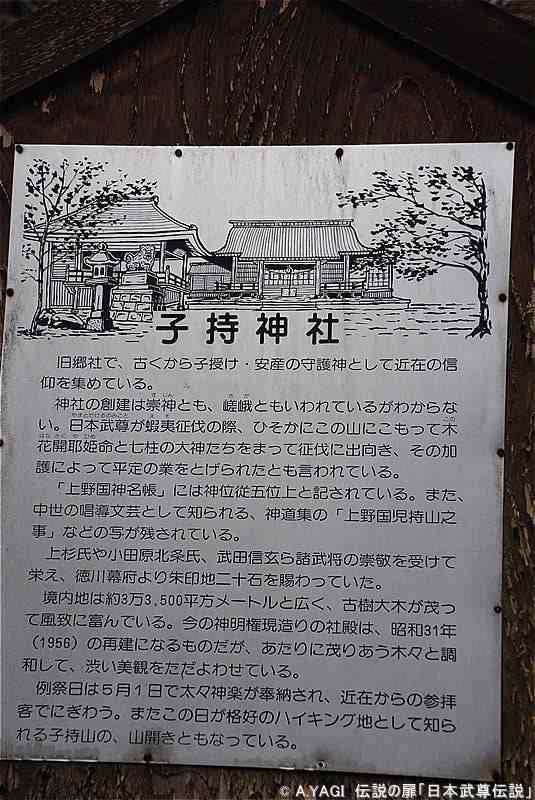 子持神社
旧郷社で、古くから子授け・安産の守護神として近在の信
仰を集めている。
神社の創建は崇神とも、嵯峨ともいわれているがわからな
い。日本武尊が蝦夷征伐の際、ひそかにこの山にこもって木
花開耶姫命と七柱の大神たちをまって征伐に出向き、その加
護によって平定の業をとげられたとも言われている。
「上野国神名帳」には神位従五位上と記されている。また、
中世の唱導文芸として知られる、神道集の「上野国児持山之
事」などの写が残されている。
上杉氏や小田原北条氏、武田信玄ら諸武将の崇敬を受けて
栄え、徳川幕府より朱印地二十石を賜わっていた。
境内地は約3万3,500平方メートルと広く、古樹大木が茂っ
て風致に富んでいる。今の神明権現造りの社殿は、昭和31年
（1956）の再建になるものだが、あたりに茂りあう木々と調
和して、渋い美観をただよわせている。
例祭日は5月1日で太々神楽が奉納され、近在からの参拝
客でにぎわう。またこの日が格好のハイキング地として知ら
れる子持山の、山開きともなっている。
© A.YAGI 伝説の扉「日本武尊伝説」